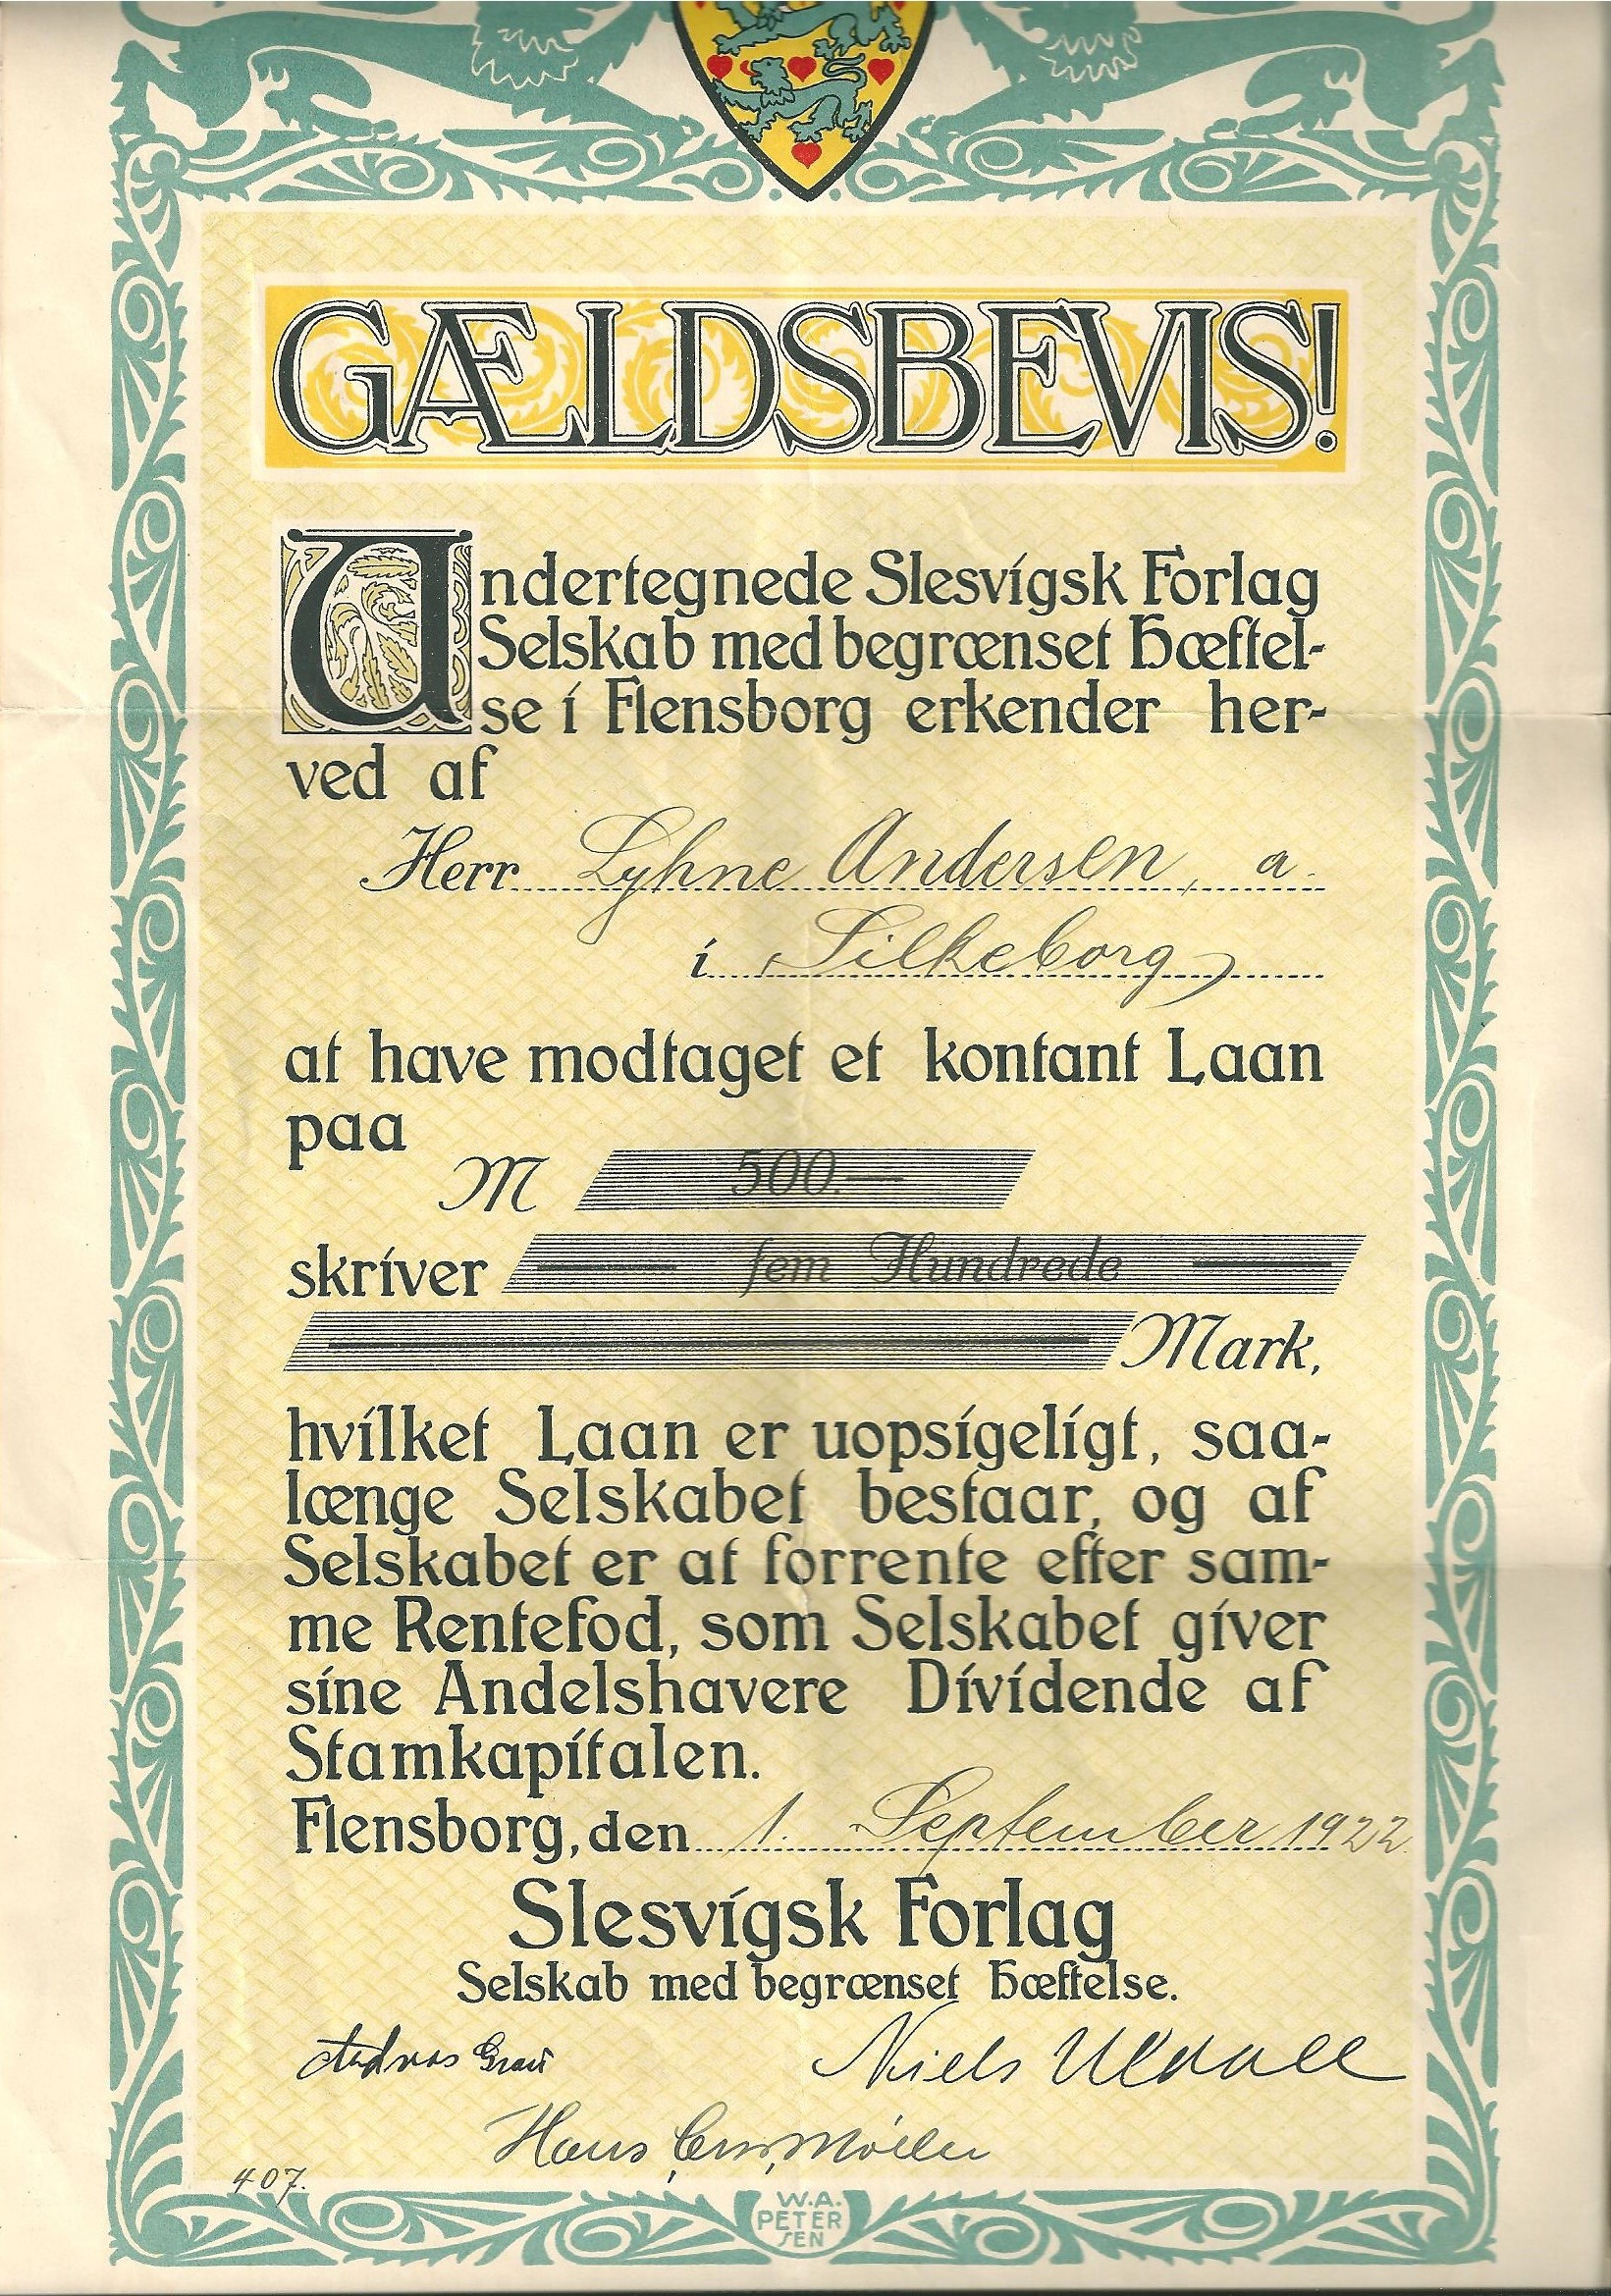 GÆLDSBEVIS!
Undertegnede Slesvigsk Forlag
Selskab med begrænset Hæftel-
se i Flensborg erkender her-
ved af
Herr Lyhne Andersen, a.
i Silkeborg
at have modtaget et kontant Laan
paa
M 500.—
skriver — fem Hundrede —
— Mark,
hvilket Laan er uopsigeligt, saa-
længe Selskabet bestaar, og af
Selskabet er at forrente efter sam-
me Rentefod, som Selskabet giver
sine Andelshavere Dividende af
Stamkapitalen.
Flensborg, den 1. September 1922
Slesvigsk Forlag
Selskab med begrænset Hæftelse.
Andreas Grau Niels Uldall
Hans
407.
W.A.
PETER
SEN